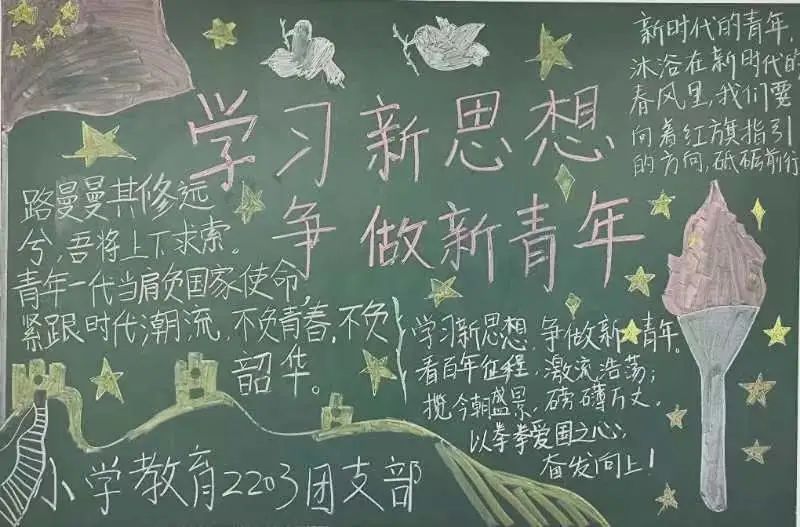 学习新思想
争做新青年
新时代的青年,
沐浴在新时代的
春风里,我们要
向着红旗指引
的方向,砥砺前行
路曼曼其修远
兮,吾将上下求索。
青年一代当肩负国家使命,
紧跟时代潮流,不负青春,不负
韶华。
学习新思想,争做新青年。
看百年征程,激流浩荡;
揽今朝盛景,磅礴万丈。
以拳拳爱国之心,
奋发向上!
小学教育2203团支部